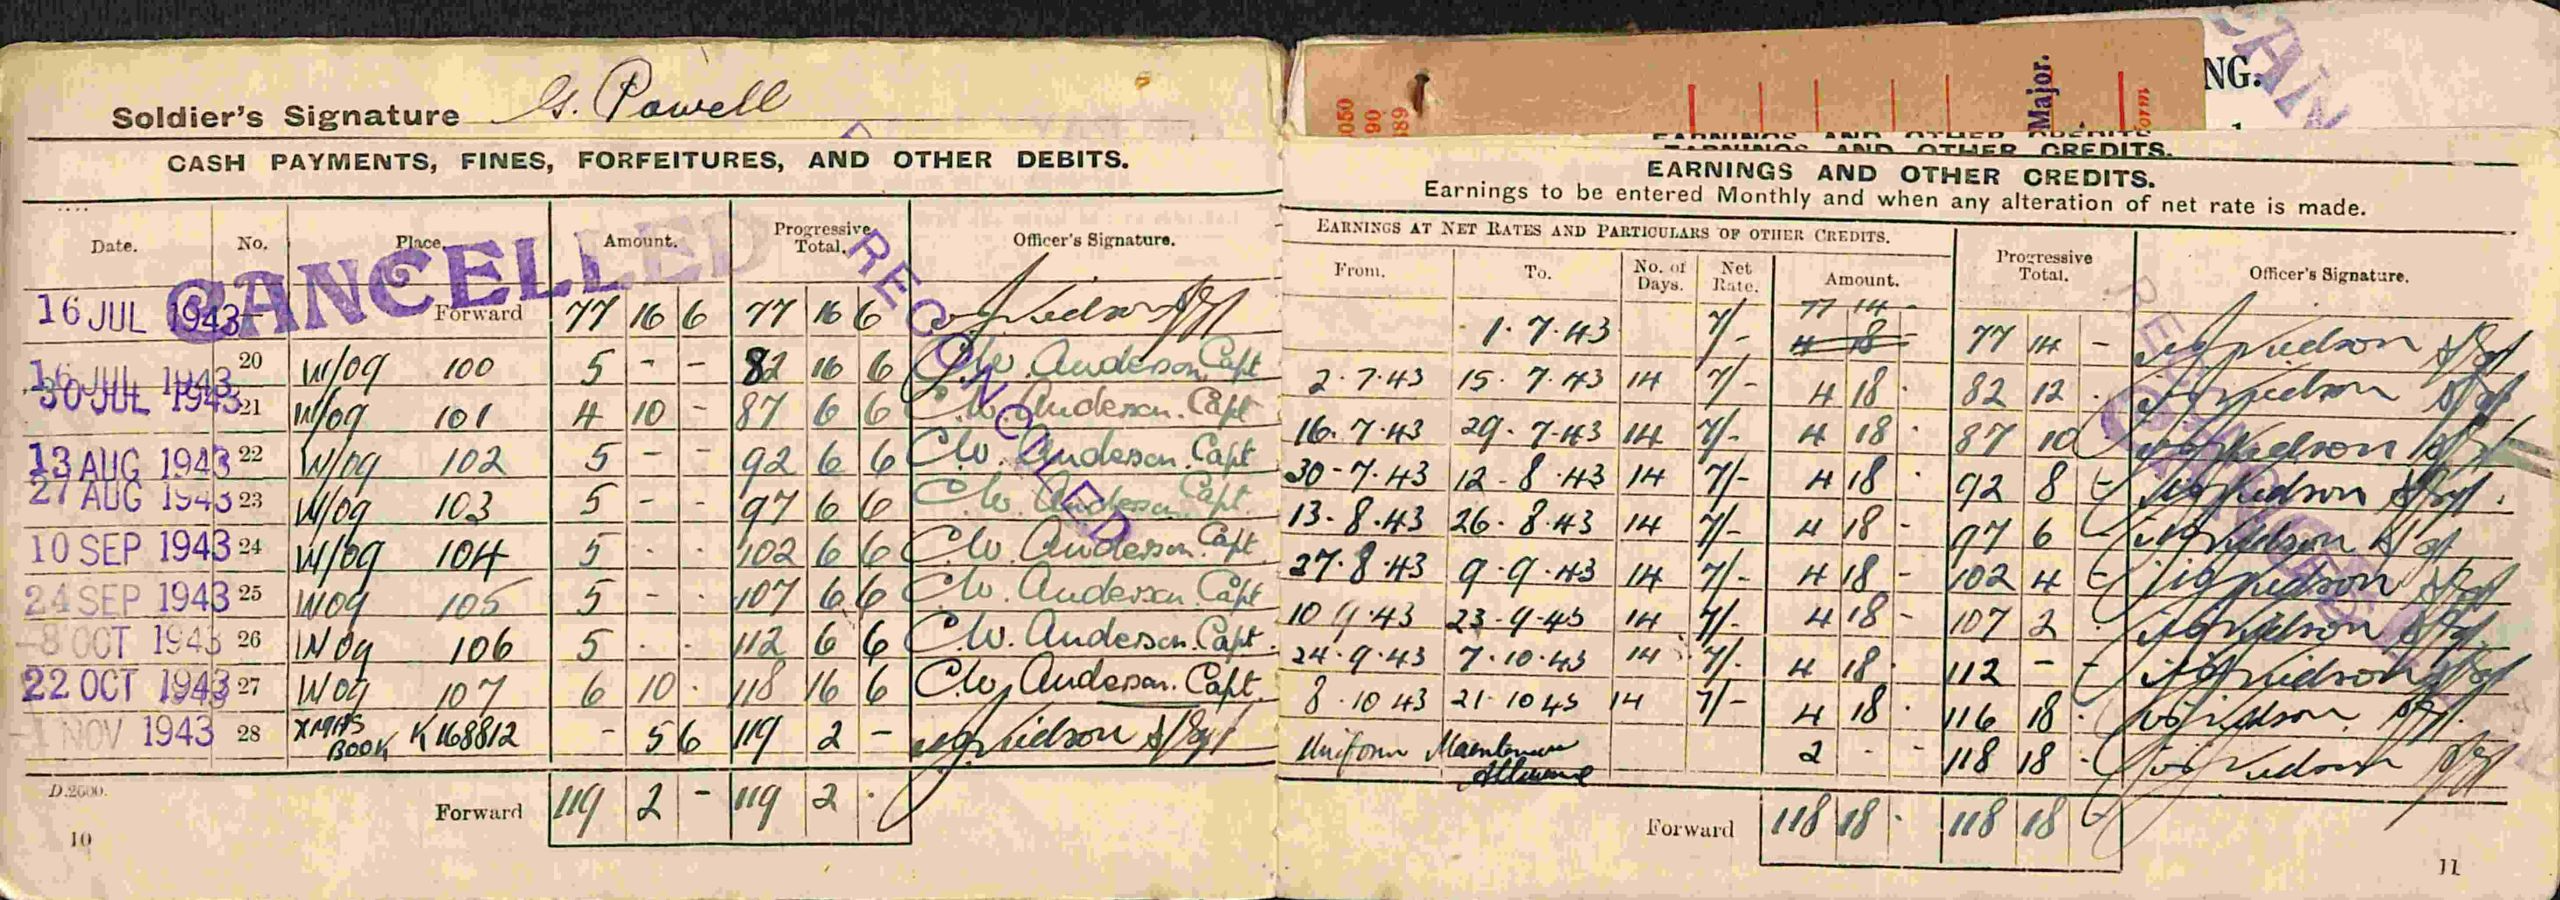 Soldier's Signature G. Powell
CASH PAYMENTS, FINES, FORFEITURES, AND OTHER DEBITS.
Date. No. Place. Amount. Progressive Total. Officer's Signature.
CANCELLED
RECONCILED
16 JUL 1943 Forward 77 16 6 77 16 6
16 JUL 1943 20 W/og 100 5 - - 82 16 6 C.W. Anderson Capt
30 JUL 1943 21 W/og 101 4 10 - 87 6 6 C.W. Anderson. Capt
13 AUG 1943 22 W/og 102 5 - - 92 6 6 C.W. Anderson. Capt
27 AUG 1943 23 W/og 103 5 - - 97 6 6 C.W. Anderson. Capt.
10 SEP 1943 24 W/og 104 5 - - 102 6 6 C.W. Anderson. Capt
24 SEP 1943 25 W/og 105 5 - - 107 6 6 C.W. Anderson. Capt
-8 OCT 1943 26 W/og 106 5 - - 112 6 6 C.W. Anderson. Capt.
22 OCT 1943 27 W/og 107 6 10 - 118 16 6 C.W. Anderson. Capt.
-1 NOV 1943 28 XMAS BOOK K168812 - 5 6 119 2 -
D.2600.
Forward 119 2 - 119 2 -
10
NG.
Major.
form
050
90
89
EARNINGS AND OTHER CREDITS
EARNINGS AND OTHER CREDITS.
EARNINGS AND OTHER CREDITS.
Earnings to be entered Monthly and when any alteration of net rate is made.
EARNINGS AT NET RATES AND PARTICULARS OF OTHER CREDITS. Progressive Total. Officer's Signature.
From. To. No. of Days. Net Rate. Amount.
77 14 -
1.7.43 7/- 4 18 - 77 14 -
2.7.43 15.7.43 14 7/- 4 18 - 82 12 -
16.7.43 29.7.43 14 7/- 4 18 - 87 10
30-7.43 12-8.43 14 7/- 4 18 - 92 8 -
13.8.43 26.8.43 14 7/- 4 18 - 97 6 -
27.8.43 9.9.43 14 7/- 4 18 - 102 4 -
10 9.43 23.9.43 14 7/- 4 18 - 107 2 -
24.9.43 7.10.43 14 7/- 4 18 - 112 - -
8.10 43 21.10 43 14 7/- 4 18 - 116 18 -
Uniform Maintenance Allowance 2 - - 118 18 -
Forward 118 18 - 118 18 -
11